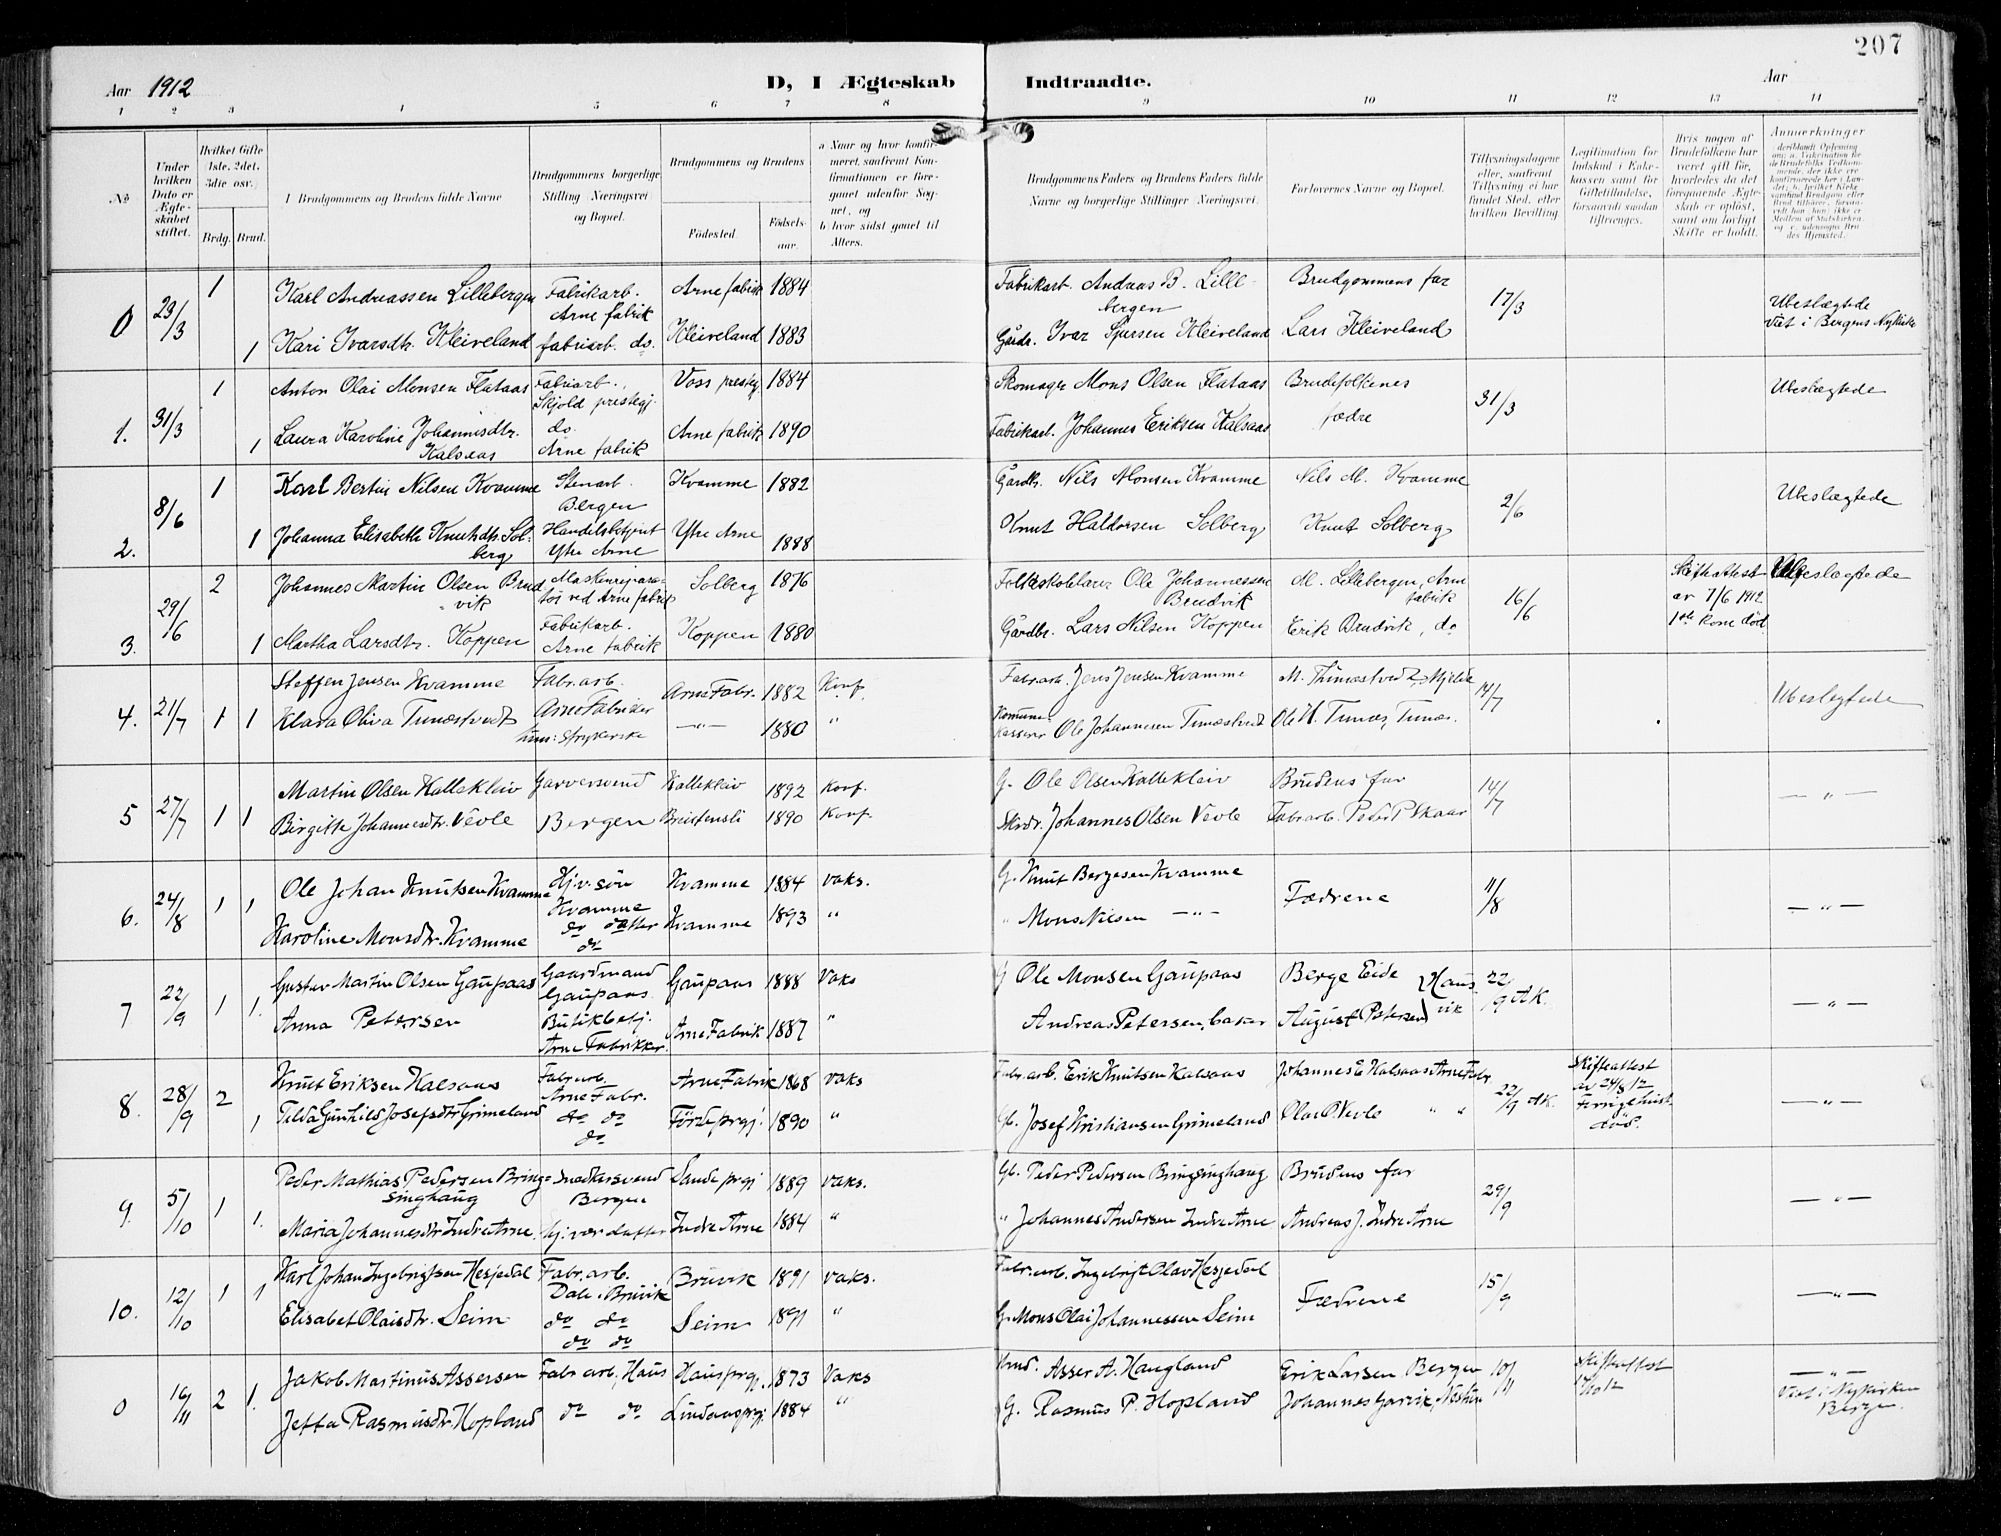 207
Aar 1912 D, I Ægteskab Indtraadte. Aar
1 2 3 4 5 6 7 8 9 10 11 12 13 14
No
Under hvilken Dato er Ægteskabet stiftet.
Hvilket Gifte 1ste, 2det, 3die osv.
Brdg. Brud.
1 Brudgommens og Brudens fulde Navne
Brudgommens borgerlige Stilling Næringsvei og Bopæl.
Brudgommens og Brudens
Fødested. Fødselsaar.
a Naar og hvor konfirmeret, saafremt Konfirmationen er foregaaet udenfor Sognet, og
b hvor sidst gaaet til Alters.
Brudgommens Faders og Brudens Faders fulde Navne og borgerlige Stillinger Næringsvei.
Forlovernes Navne og Bopæl.
Tillysningsdagene eller, saafremt Tillysning ei har fundet Sted, efter hvilken Bevilling
Legitimation for Indskud i Enkekassen samt for Giftetilladelse, forsaavidt saadan tiltrænges.
Hvis nogen af Brudefolkene har været gift før, hvorledes da det foregaaende Ægteskab er opløst, samt om lovligt Skifte er holdt.
Anmerkninger
0 23/3 1 Karl Andreassen Lillebergen Fabrikarb. Arne fabrik Arne fabrik 1884 Fabrikarb. Andreas B. Lillebergen Brudgommens far 17/3 Ubeslægtede
1 Kari Ivarsdtr. Kleiveland fabriarb. do. Kleiveland 1883 Gårdr. Ivar Kleiveland Lars Kleiveland Viet i Bergens Nykirke
1. 31/3 1 Anton Olai Monsen Flataas Fabriarb. Skjold prestegj. Voss prestegj. 1884 Skomager Mons Olsen Flataas Brudefolkenes fædre 31/3 Ubeslægtede
1 Laura Karoline Johannisdtr. Kalsaas do. Arne fabrik Arne fabrik 1890 Fabrikarb. Johannes Eriksen Kalsaas
2. 8/6 1 Karl Bertin Nilsen Kvamme Stenarb. Bergen Kvamme 1882 Gårdb. Nils Monsen Kvamme Nils M. Kvamme 2/6 Ubeslægtede
1 Johanna Elisabeth Knutsdtr. Solberg Handelsbetjent Ytre Arne Ytre Arne 1888 Knut Haldorsen Solberg Knut Solberg
3. 29/6 2 Johannes Martin Olsen Brudvik Maskinreparatør ved Arne fabrik Solberg 1876 Folkeskolelærer Ole Johannessen Brudvik M. Lillebergen, Arne fabrik 16/6 Skifteattest av 7/6 1912 1ste kone død. Ubeslægtede
1 Martha Larsdtr. Koppen Fabrikarb. Arne fabrik Koppen 1880 Gårdbr. Lars Nilsen Koppen Erik Brudvik, do
4. 21/7 1 1 Steffen Jensen Kvamme Fabr.arb. Arne Fabriker Arne Fabr. 1882 Konf. Fabr.arb. Jens Jensen Kvamme 14/7 Ubeslegtede
Klara Oliva Tunæstvedt hun: Strykerske —"— 1880 " Komunekasserer Ole Johannesen Tunæstvedt Ole H. Tunæs, Tunæs.
5 27/7 1 1 Martin Olsen Kallekleiv Garversvend Kallekleiv 1892 Konf. G. Ole Olsen Kallekleiv Brudens far 14/7 — " —
Birgitte Johannesdtr. Vevle Bergen Breistensli 1890 Konf. Johannes Olsen Vevle Fabr.arb. Peder P. Skaar
6. 24/8 1 1 Ole Johan Knutsen Kvamme Hj.v. søn Kvamme Kvamme 1884 Vaks. G. Knut Bergesen Kvamme Fædrene 11/8 — " —
Karoline Monsdtr. Kvamme do datter do Kvamme 1893 " " Mons Nilsen —"—
7 22/9 1 1. Gustav Martin Olsen Gaupaas Gaardmand Gaupaas Gaupaas 1888 Vaks G Ole Monsen Gaupaas Berge Eide } Hausvik 22/9 A.K. — " —
Anna Petersen Butikbetj. Arne Fabrikker Arne Fabrik 1887 " Andreas Petersen, baker August Petersen
8. 28/9 2 Knut Eriksen Kalsaas Fabr.arb. Arne Fabr. Arne Fabrik 1868 Vaks Fabr.arb. Erik Knutsen Kalsaas Johannes E Kalsaas Arne Fabr. 22/9 A.K. Skifteattest av 24/8 12 Forrige hust. død. — " —
1 Tilda Gunhild Josefsdtr Grimeland do do do Förde prgj. 1890 " Gb. Josef Kristiansen Grimeland Olai O. Vevle " "
9. 5/10 1 1. Peder Mathias Pedersen Bringsinghaug Snedkersvend Bergen Sande prgj 1889 Vaks. Gb. Peder Pedersen Bringsinghaug Brudens far 29/9 — " —
Maria Johannesdtr Indre Arne. hj.vær. datter Indre Arne 1884 " " Johannes Andersen Indre Arne Andreas J. Indre Arne
10. 12/10 1 1 Karl Johan Ingebrigtsen Hesjedal Fabr.arb. Dale, Bruvik Bruvik 1891 Vaks. Fabr.arb. Ingebrigt Olav Hesjedal Fædrene 15/9 — " —
Elisabet Olaisdtr. Seim do do do do Seim 1891 " G. Mons Olai Johannessen Seim
0 16/11 2 1. Jakob Martinus Assersen Fabr.arb., Haus Hausprgj. 1873 Vaks Asser A. Haugland Erik Larsen Bergen 10/11 Skifteattest — " —
Jetta Rasmusdtr. Hopland do do Lindaasprgj. 1884 " G. Rasmus P. Hopland Johannes Garvik, Viet i Nykirken Bergen.